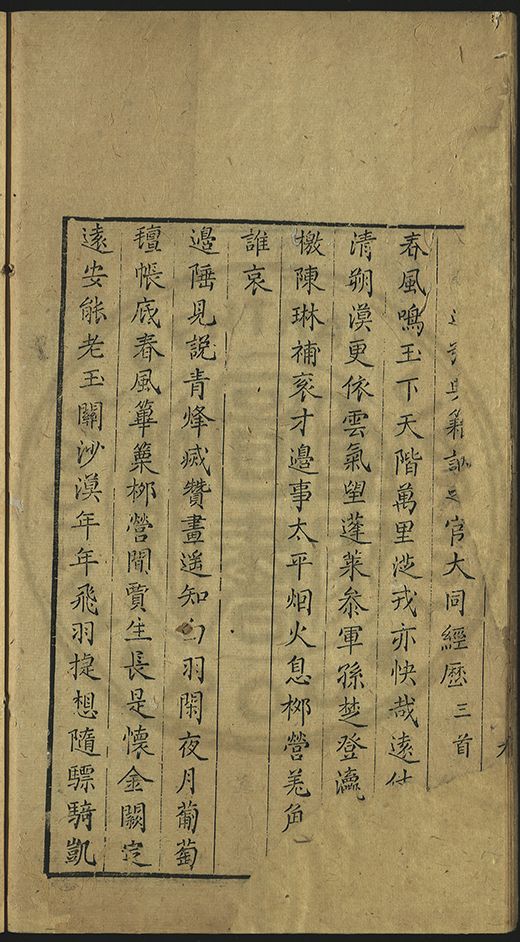 典籍謫官大同經歷三首
春風鳴玉下天階萬里從戎亦快哉遠
清朔漠更依雲氣望蓬萊參軍孫楚登瀛
檄陳琳補袞才邊事太平烟火息柳營羌角
誰哀
邉陲見說青烽滅贊畫遥知羽閑夜月葡萄
氊帳底春風篳篥柳營間賈生長是懷金闕定
遠安能老玉關沙漠年年飛羽捷想隨驃騎凱